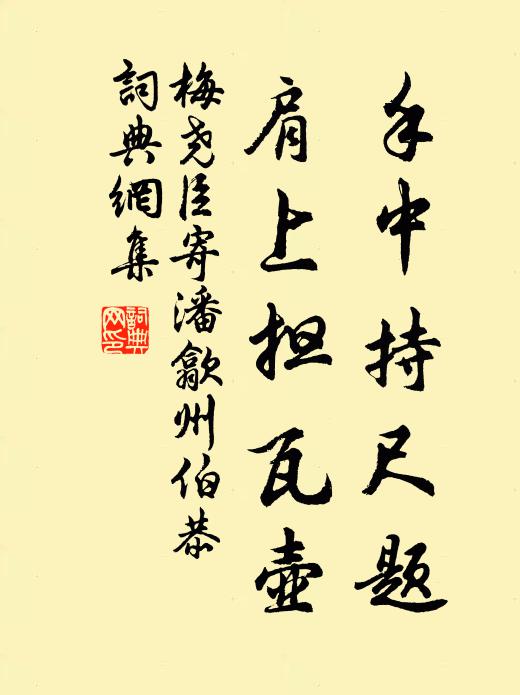 手中持尺题
肩上担瓦壶
梅尧臣寄潘歙州伯恭
词典網集
詞典
网印